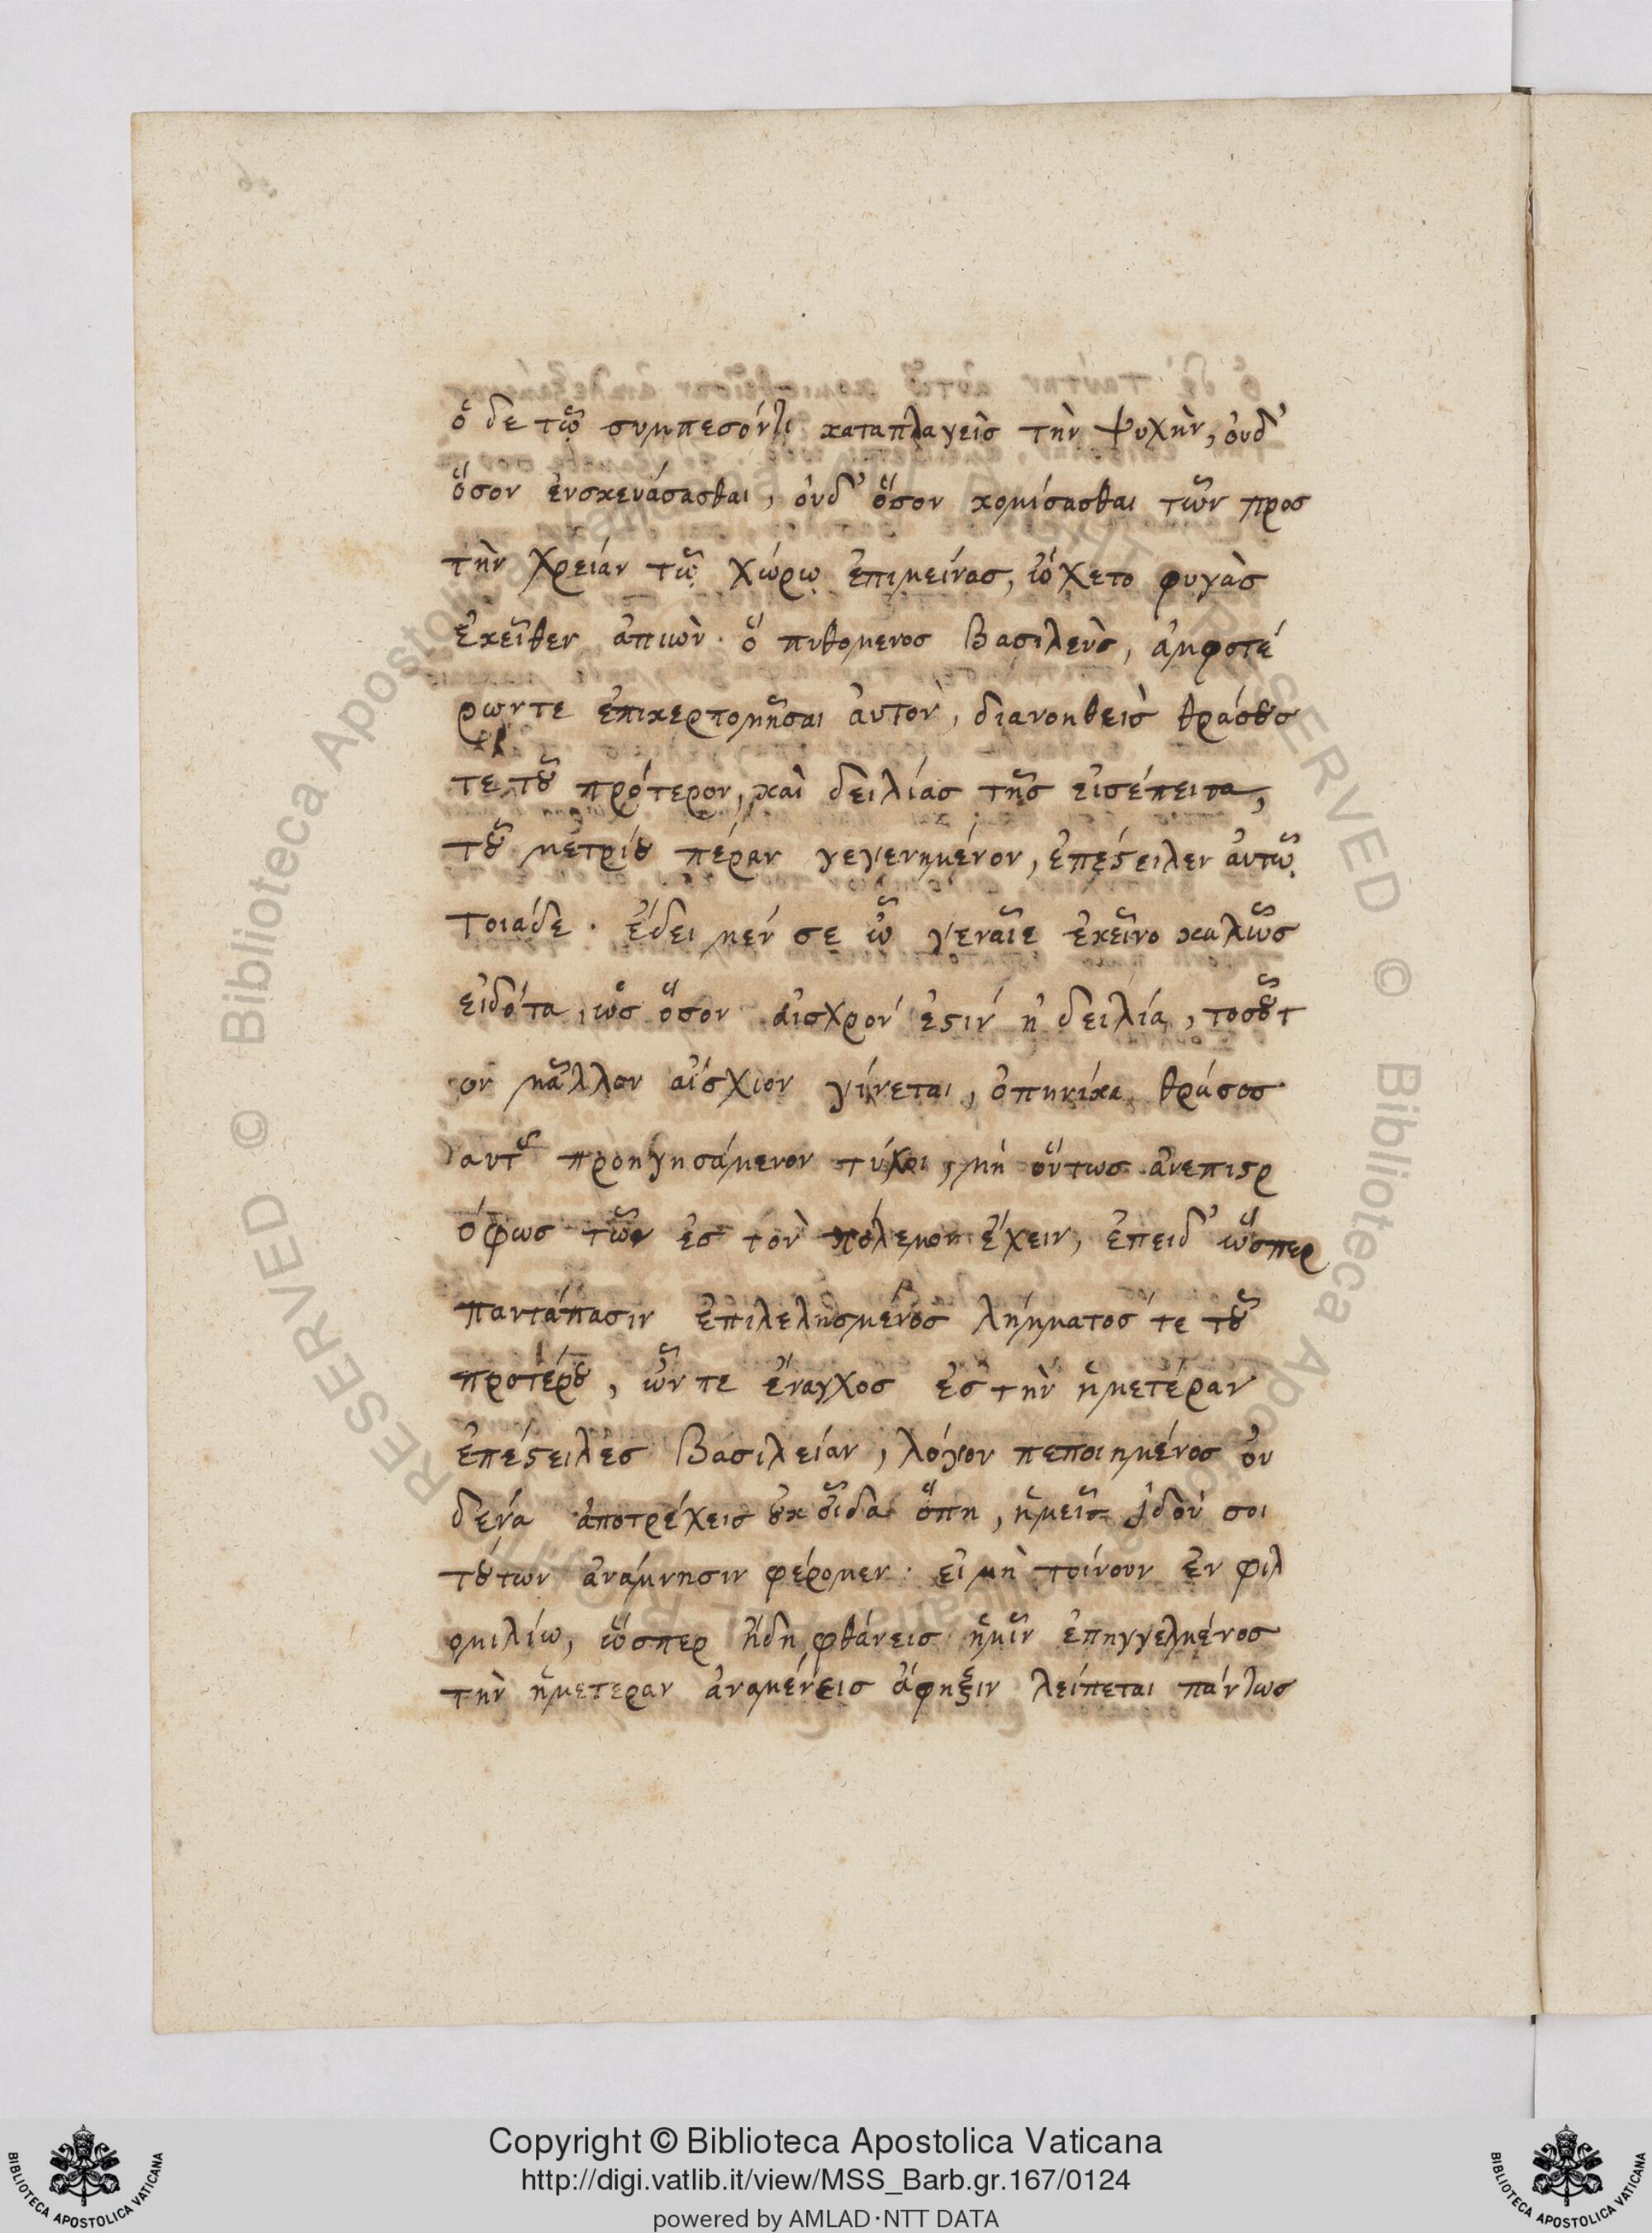 ὁ δε τῷ συμπεσόντι καταπλαγεὶς τὴν ψυχὴν, οὐδ'
ὅσον ἐνσκευάσασθαι, οὐδ' ὅσον κομίσασθαι τῶν προς
τὴν χρείαν τῷ χώρῳ ἐπιμείνας, ᾤχετο φυγὰς
ἐκεῖθεν ἀπιὼν. ὁ πυθομενος Βασιλεὺς, ἀμφοτέ
ρωντε ἐπικερτομῆσαι ἀυτον, διανοηθεὶς θράσȣς
τε τȣ͂ πρότερον, καὶ δειλίας τῆς εἰσέπειτα,
τȣ͂ μετρίȣ πέραν γεγενημένον, ἐπέϛειλεν ἀυτῷ
τοιάδε. ἔδει μέν σε ὦ γεναῖε ἐκεῖνο καλῶς
ειδότα, ὡς ὅσον ἀισχρόν ἐϛιν ἡ δειλία, τοσȣ͂τ
ον μᾶλλον αἴσχιον γίνεται, ὁπηνίκα θράσος
αυτȣ͂ προηγησάμενον τύχοι, μὴ οὕτως ἀνεπιϛρ
όφως τῶν ἐς τὸν πόλεμον ἔχειν, ἐπειδ' ὥσπερ
παντάπασιν ἐπιλελησμένος λήμματος τε τȣ͂
προτέρȣ, ὧν τε ἔναγχος ἐς τὴν ἡμετέραν
ἐπέϛειλες Βασιλείαν, λόγον πεποιημένος ȣ̓
δένα ἀποτρέχεις ȣκ οἶδα ὅπη, ἡμεῖς ἰδοὺ σοι
τȣ́των ἀνάμνησιν φέρομεν. ει μὴ τοίνουν ἐν φιλ
ομιλίω, ὥσπερ ἤδη φθάνεις ἡμῖν ἐπηγγελμένος
τὴν ἡμετεραν ἀναμένεις ἄφηξιν λείπεται πάντως
Copyright © Biblioteca Apostolica Vaticana
http://digi.vatlib.it/view/MSS_Barb.gr.167/0124
powered by AMLAD·NTT DATA